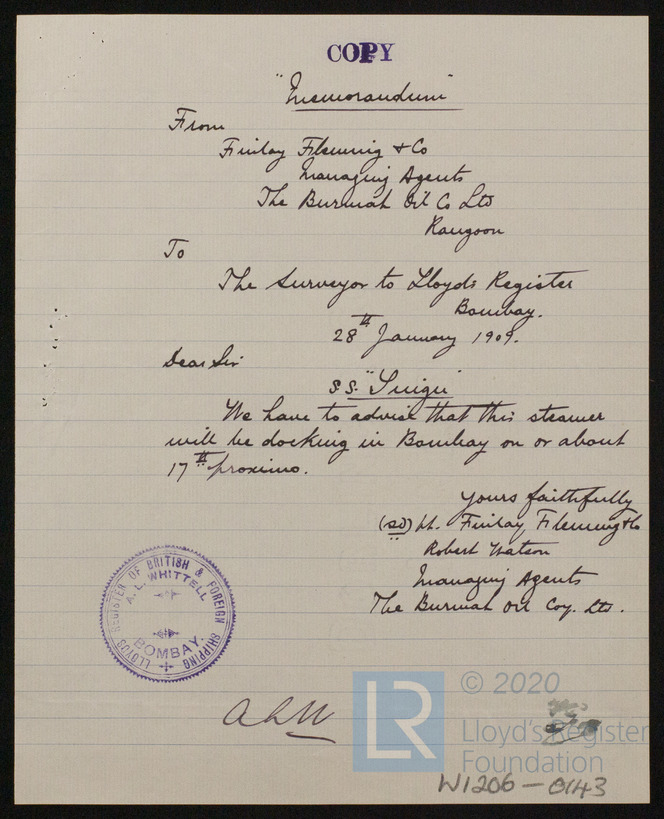 COPY
"Memorandum"
From
Finlay Fleming & Co
Managing Agents
The Burmah Oil Co Ltd
Rangoon
To
The Surveyor to Lloyds Register
Bombay.
28th January 1909.
Dear Sir
S.S. "Singu"
We have to advise that this steamer
will be docking in Bombay on or about
17th proximo.
Yours faithfully
(sd) pp. Finlay Fleming & Co
Robert Watson
Managing Agents
The Burmah Oil Coy. Ltd.
LLOYDS REGISTER OF BRITISH & FOREIGN SHIPPING
A. L. WHITTELL
BOMBAY.
ALW
LR
© 2020
Lloyd's Register
Foundation
W1206-0143